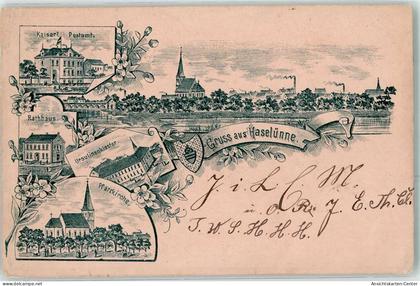 Kaiserl. Postamt.
Rathhaus
Ursulinenkloster
Pfarrkirche
Gruss aus Haselünne.
J. i. L. M
u. o. R. J. E. Th. El.
T. W. S. H. H. H.
Ansichtskarten-Center